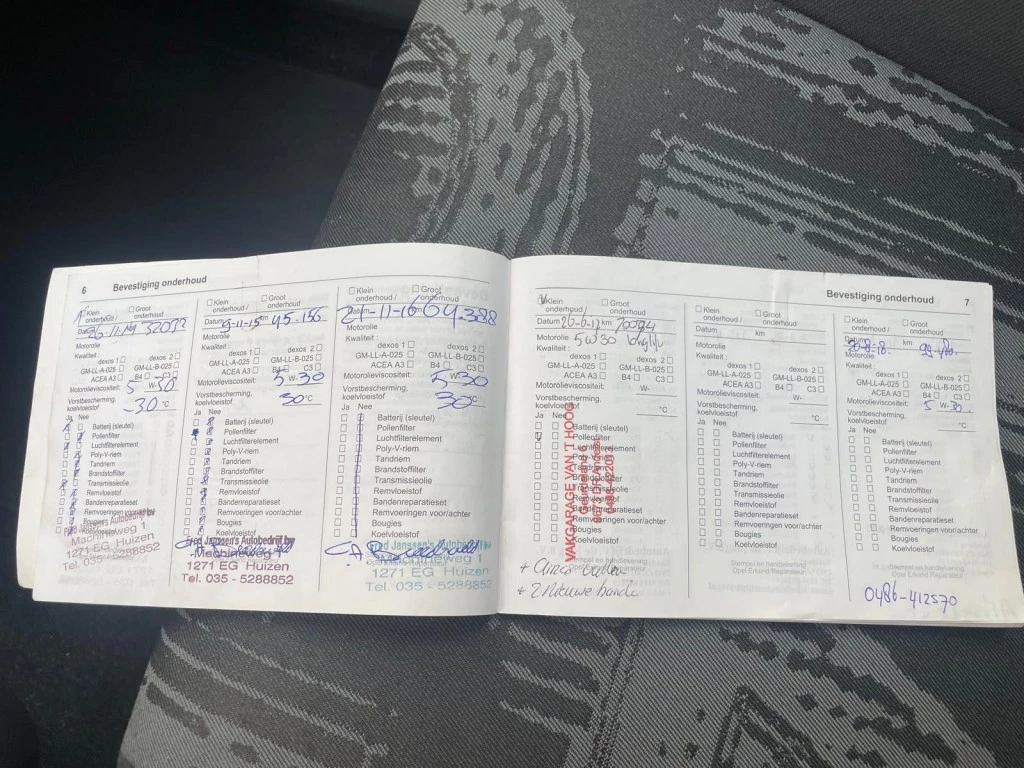 6 Bevestiging onderhoud
Klein onderhoud / Groot onderhoud
Datum 26.11.14 32092
Motorolie
Kwaliteit:
dexos 1 dexos 2
GM-LL-A-025 GM-LL-B-025
ACEA A3 B4 C3
Motorolieviscositeit: 5 W-30
Vorstbescherming,
koelvloeistof -30 °C
Ja Nee
Batterij (sleutel)
Pollenfilter
Luchtfilterelement
Poly-V-riem
Tandriem
Brandstoffilter
Transmissieolie
Remvloeistof
Bandenreparatieset
Remvoeringen voor/achter
Bougies
Machineweg 1
1271 EG Huizen
Tel. 035 - 5288852
Klein onderhoud / Groot onderhoud
Datum 9-11-15 km 45.156
Motorolie
Kwaliteit:
dexos 1 dexos 2
GM-LL-A-025 GM-LL-B-025
ACEA A3 B4 C3
Motorolieviscositeit: 5 W-30
Vorstbescherming,
koelvloeistof 30 °C
Ja Nee
Batterij (sleutel)
Pollenfilter
Luchtfilterelement
Poly-V-riem
Tandriem
Brandstoffilter
Transmissieolie
Remvloeistof
Bandenreparatieset
Remvoeringen voor/achter
Bougies
Koelvloeistof
Fred Janssen's Autobedrijf bv
Machineweg 1
1271 EG Huizen
Tel. 035 - 5288852
Klein onderhoud / Groot onderhoud
Datum 21-11-16 64.388
Motorolie
Kwaliteit:
dexos 1 dexos 2
GM-LL-A-025 GM-LL-B-025
ACEA A3 B4 C3
Motorolieviscositeit: 5 W-30
Vorstbescherming,
koelvloeistof 30 °C
Ja Nee
Batterij (sleutel)
Pollenfilter
Luchtfilterelement
Poly-V-riem
Tandriem
Brandstoffilter
Transmissieolie
Remvloeistof
Bandenreparatieset
Remvoeringen voor/achter
Bougies
Koelvloeistof
Fred Janssen's Autobedrijf bv
Machineweg 1
1271 EG Huizen
Tel. 035 - 5288852
Bevestiging onderhoud 7
Klein onderhoud / Groot onderhoud
Datum km
Motorolie 5W30 longlife
Kwaliteit:
dexos 1 dexos 2
GM-LL-A-025 GM-LL-B-025
ACEA A3 B4 C3
Motorolieviscositeit: W-
Vorstbescherming,
koelvloeistof °C
Ja Nee
Batterij (sleutel)
Pollenfilter
Luchtfilterelement
Poly-V-riem
Tandriem
Brandstoffilter
Transmissieolie
Remvloeistof
Bandenreparatieset
Remvoeringen voor/achter
Bougies
Koelvloeistof
VAKGARAGE VAN 'T HOOG
+ 2 Nieuwe
Klein onderhoud / Groot onderhoud
Datum km
Motorolie
Kwaliteit:
dexos 1 dexos 2
GM-LL-A-025 GM-LL-B-025
ACEA A3 B4 C3
Motorolieviscositeit: W-
Vorstbescherming,
koelvloeistof °C
Ja Nee
Batterij (sleutel)
Pollenfilter
Luchtfilterelement
Poly-V-riem
Tandriem
Brandstoffilter
Transmissieolie
Remvloeistof
Bandenreparatieset
Remvoeringen voor/achter
Bougies
Koelvloeistof
Stempel en handtekening
Opel Erkend Reparateur
Klein onderhoud / Groot onderhoud
Datum km 99.480
Motorolie
Kwaliteit:
dexos 1 dexos 2
GM-LL-A-025 GM-LL-B-025
ACEA A3 B4 C3
Motorolieviscositeit: 5 W-30
Vorstbescherming,
koelvloeistof °C
Ja Nee
Batterij (sleutel)
Pollenfilter
Luchtfilterelement
Poly-V-riem
Tandriem
Brandstoffilter
Transmissieolie
Remvloeistof
Bandenreparatieset
Remvoeringen voor/achter
Bougies
Koelvloeistof
Stempel en handtekening
Opel Erkend Reparateur
0486-412570